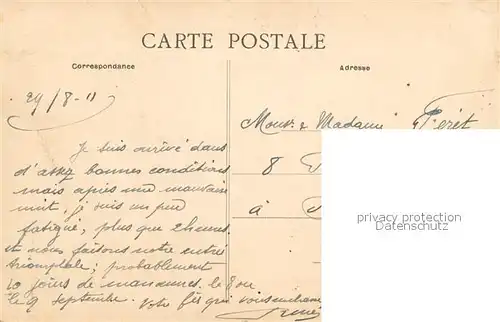 CARTE POSTALE
Correspondance
Adresse
29/8-11
Monsr & Madame Péret
8
à
Je suis arrivé dans
d'assez bonnes conditions
mais après une mauvaise
nuit, je suis un peu
fatigué; plus que
et nous faisons notre entrée
triomphale; probablement
10 jours de manœuvres. le 8 ou
le 9 septembre. Votre fils qui vous
René
privacy protection
Datenschutz